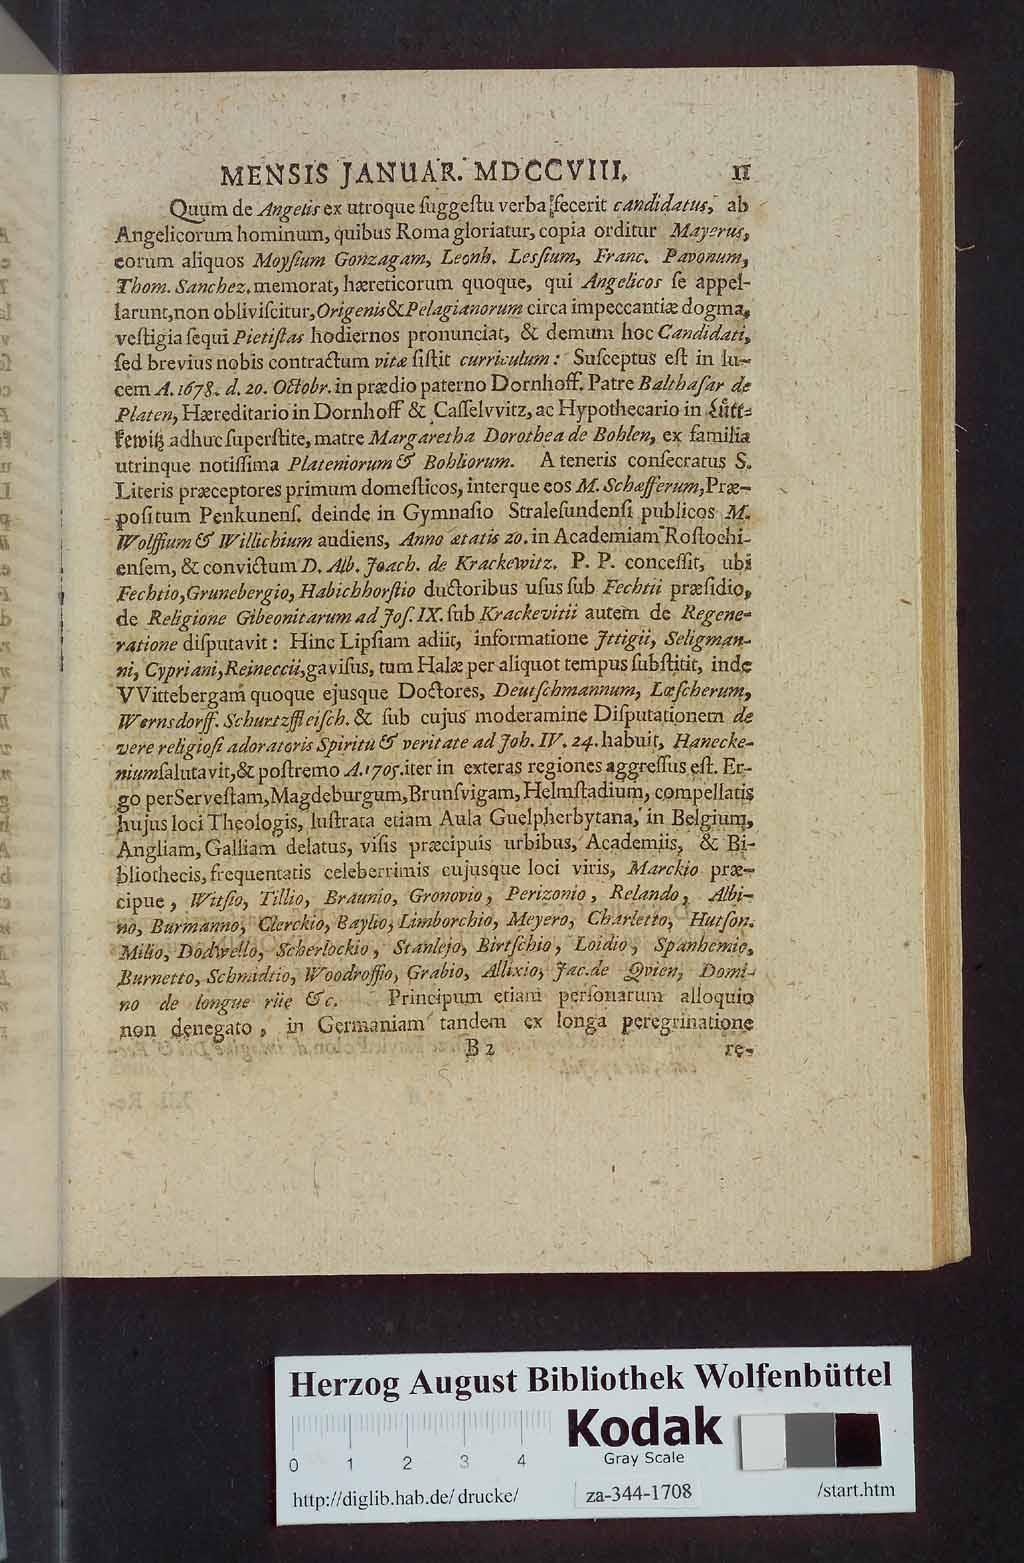 MENSIS JANUAR. MDCCVIII. 11
Quum de Angelis ex utroque ſuggeſtu verba fecerit candidatus, ab
Angelicorum hominum, quibus Roma gloriatur, copia orditur Mayerus,
eorum aliquos Moyſium Gonzagam, Leonh. Leſſium, Franc. Pavonum,
Thom. Sanchez, memorat, hæreticorum quoque, qui Angelicos ſe appel-
larunt, non obliviſcitur, Origenis & Pelagianorum circa impeccantiæ dogma,
veſtigia ſequi Pietiſtas hodiernos pronunciat, & demum hoc Candidati,
ſed brevius nobis contractum vitæ ſiſtit curriculum: Suſceptus eſt in lu-
cem A. 1678. d. 20. Octobr. in prædio paterno Dornhoff. Patre Balthaſar de
Platen, Hæreditario in Dornhoff & Caſſelvvitz, ac Hypothecario in Lütt-
kewitz adhuc ſuperſtite, matre Margaretha Dorothea de Bohlen, ex familia
utrinque notiſſima Plateniorum & Bohliorum. A teneris conſecratus S.
Literis præceptores primum domeſticos, interque eos M. Schæfferum, Præ-
poſitum Penkunenſ. deinde in Gymnaſio Straleſundenſi publicos M.
Wolffium & Willichium audiens, Anno ætatis 20. in Academiam Roſtochi-
enſem, & convictum D. Alb. Joach. de Krackewitz. P. P. conceſſit, ubi
Fechtio, Grunebergio, Habichhorſtio ductoribus uſus ſub Fechtii præſidio,
de Religione Gibeonitarum ad Joſ. IX. ſub Krackevitii autem de Regene-
ratione diſputavit: Hinc Lipſiam adiit, informatione Jttigii, Seligman-
ni, Cypriani, Reineccii, gaviſus, tum Halæ per aliquot tempus ſubſtitit, inde
VVittebergam quoque ejusque Doctores, Deutſchmannum, Lœſcherum,
Wernsdorff. Schurtzfleiſch. & ſub cujus moderamine Diſputationem de
vere religioſi adoratoris Spiritu & veritate ad Joh. IV. 24. habuit, Hanecke-
nium ſalutavit, & poſtremo A. 1705. iter in exteras regiones aggreſſus eſt. Er-
go per Serveſtam, Magdeburgum, Brunſvigam, Helmſtadium, compellatis
hujus loci Theologis, luſtrata etiam Aula Guelpherbytana, in Belgium,
Angliam, Galliam delatus, viſis præcipuis urbibus, Academiis, & Bi-
bliothecis, frequentatis celeberrimis cujusque loci viris, Marckio præ-
cipue, Witſio, Tillio, Braunio, Gronovio, Perizonio, Relando, Albi-
no, Burmanno, Clerckio, Baylio, Limborchio, Meyero, Charletto, Hutſon.
Milio, Dodwello, Scherlockio, Stanlejo, Birtſchio, Loidio, Spanhemio,
Burnetto, Schmidtio, Woodroffio, Grabio, Allixio, Jac. de Qvien, Domi-
no de longue riie &c. Principum etiam perſonarum alloquio
non denegato, in Germaniam tandem ex longa peregrinatione
B 2 re-
Herzog August Bibliothek Wolfenbüttel
Kodak
Gray Scale
0 1 2 3 4
http://diglib.hab.de/drucke/ za-344-1708 /start.htm